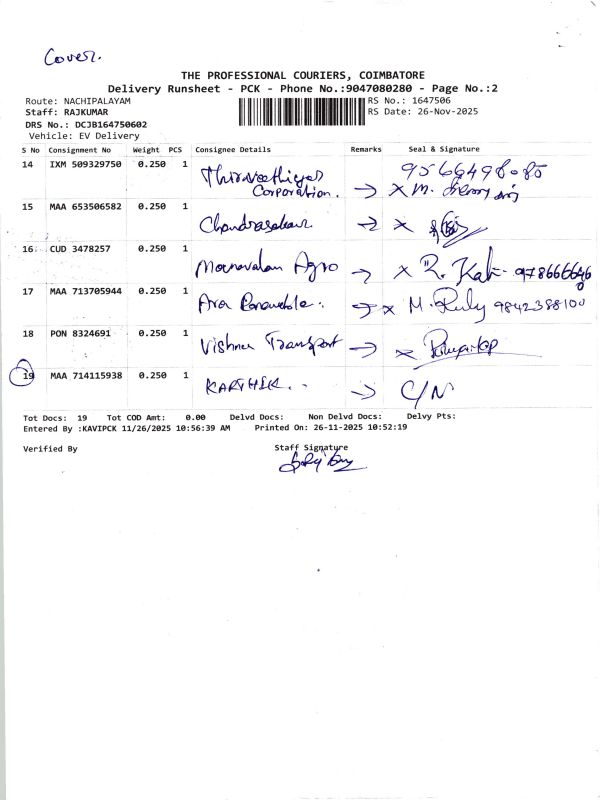 Cover.
THE PROFESSIONAL COURIERS, COIMBATORE
Delivery Runsheet - PCK - Phone No.:9047080280 - Page No.:2
Route: NACHIPALAYAM
RS No.: 1647506
Staff: RAJKUMAR
RS Date: 26-Nov-2025
DRS No.: DCJB164750602
Vehicle: EV Delivery
S No Consignment No Weight PCS Consignee Details Remarks Seal & Signature
14 IXM 509329750 0.250 1
Corporation. → x M.
15 MAA 653506582 0.250 1 Chandrasekar → x
16 CUD 3478257 0.250 1 Agro → x R.
17 MAA 713705944 0.250 1 → x M. 9842388100
18 PON 8324691 0.250 1 Vishnu Transport → x
19 MAA 714115938 0.250 1 KARTHIK. → C/N
Tot Docs: 19 Tot COD Amt: 0.00 Delvd Docs: Non Delvd Docs: Delvy Pts:
Entered By :KAVIPCK 11/26/2025 10:56:39 AM Printed On: 26-11-2025 10:52:19
Verified By Staff Signature